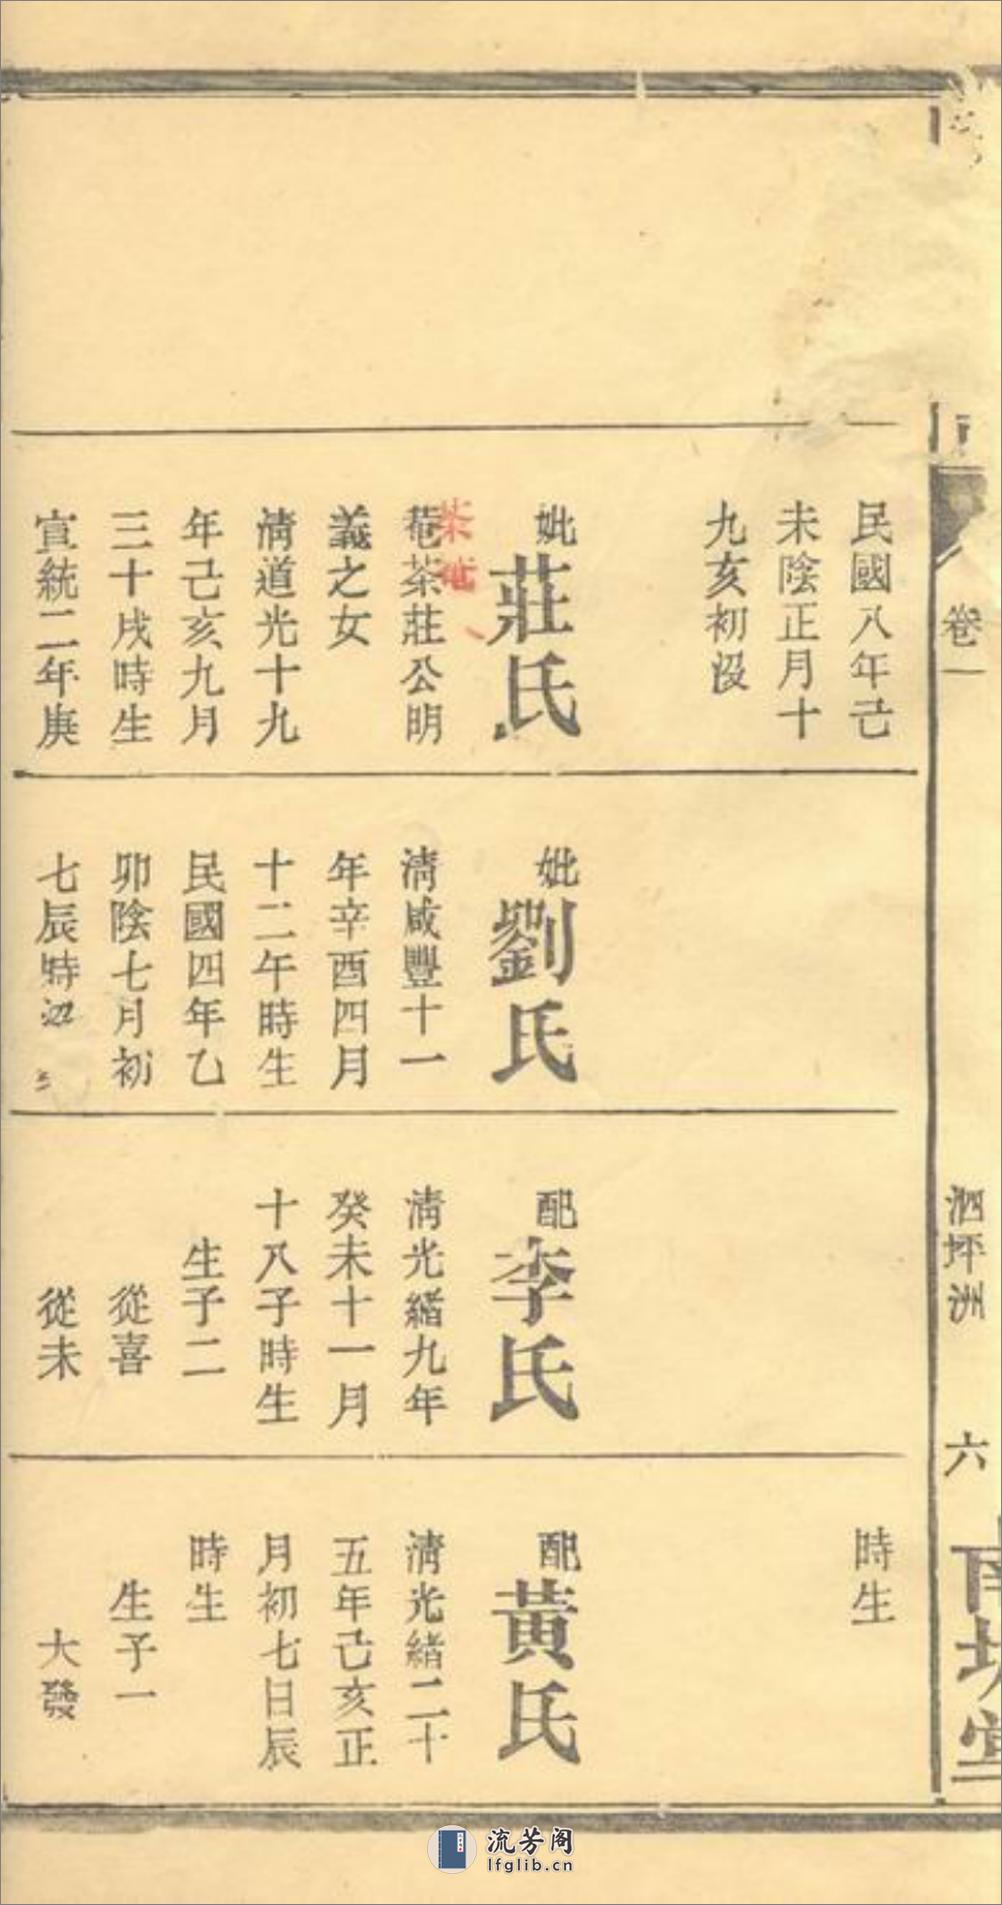 卷一
泗坪洲
六
民國八年己
未陰正月十
九亥初沒
妣莊氏
菴茶莊公明
義之女
清道光十九
年己亥九月
三十戌時生
宣統二年庚
茶菴
妣劉氏
清咸豐十一
年辛酉四月
十二午時生
民國四年乙
卯陰七月初
七辰時沒
配李氏
清光緒九年
癸未十一月
十八子時生
生子二
從喜
從未
時生
配黃氏
清光緒二十
五年己亥正
月初七日辰
時生
生子一
大發
流芳阁
lfglib.cn